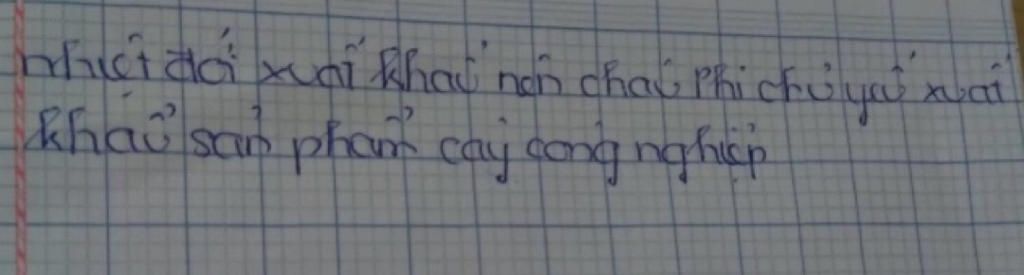 nhiệt đới xuất khẩu nên châu Phi chủ yếu xuất
khẩu sản phẩm cây công nghiệp